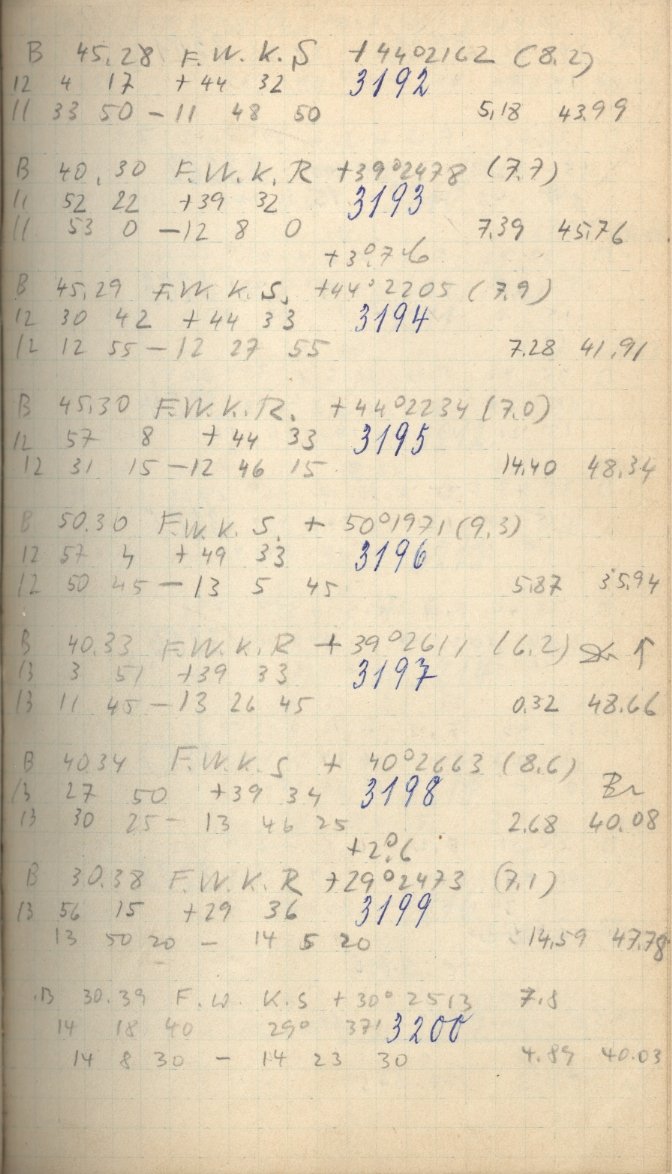 B 45,28 F.W.K.S +44°2162 (8.2)
12 4 17 +44 32 3192
11 33 50 – 11 48 50 5,18 43.99
B 40,30 F.W.K.R +39°2478 (7.7)
11 52 22 +39 32 3193
11 53 0 – 12 8 0 7.39 45.76
+3°,746
B 45,29 F.W.K.S. +44°2205 (7.9)
12 30 42 +44 33 3194
12 12 55 – 12 27 55 7.28 41,91
B 45.30 F.W.K.R. +44°2234 (7.0)
12 57 8 +44 33 3195
12 31 15 – 12 46 15 14.40 48.34
B 50.30 F.W.K.S. + 50°1971 (9.3)
12 57 4 +49 33 3196
12 50 45 – 13 5 45 5.87 35.94
B 40.33 F.W.K.R +39°2611 (6.2)
13 3 51 +39 33 3197
13 11 45 – 13 26 45 0.32 48.66
B 40.34 F.W.K.S + 40°2663 (8.6)
13 27 50 +39 34 3198 Br
13 30 25 – 13 46 25 2.68 40.08
+2°,6
B 30.38 F.W.K.R +29°2473 (7.1)
13 56 15 +29 36 3199
13 50 20 – 14 5 20 14.59 47.78
B 30.39 F.W.K.S +30°2513 7.8
14 18 40 29° 37' 3200
14 8 30 – 14 23 30 4.89 40.03